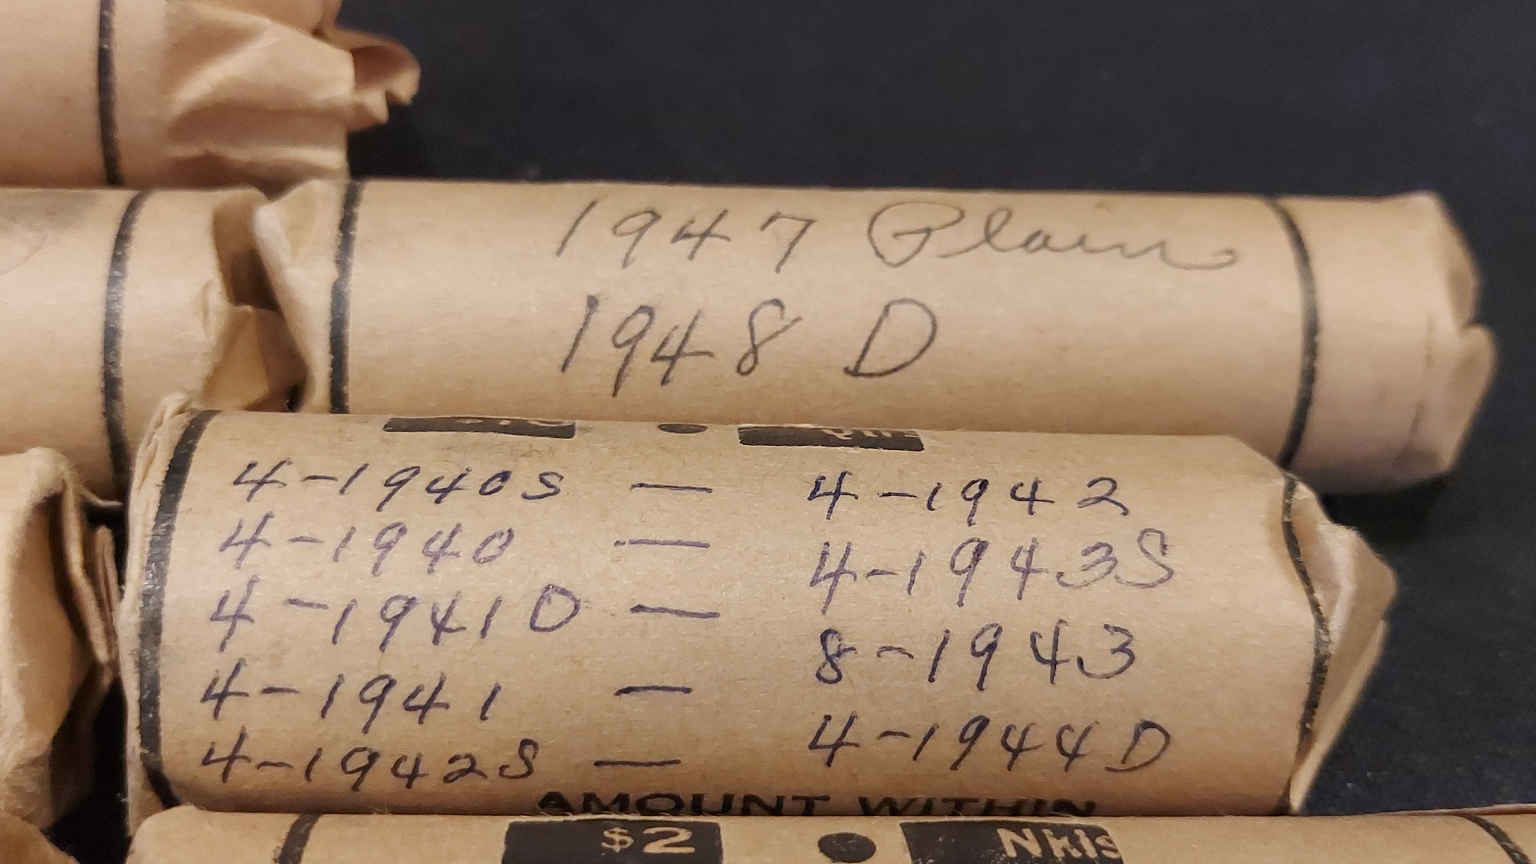 1947 Plain
1948 D
4-1940S — 4-1942
4-1940 — 4-1943S
4-1941D — 8-1943
4-1941 — 4-1944D
4-1942S —
AMOUNT WITHIN
$2 • Nkls